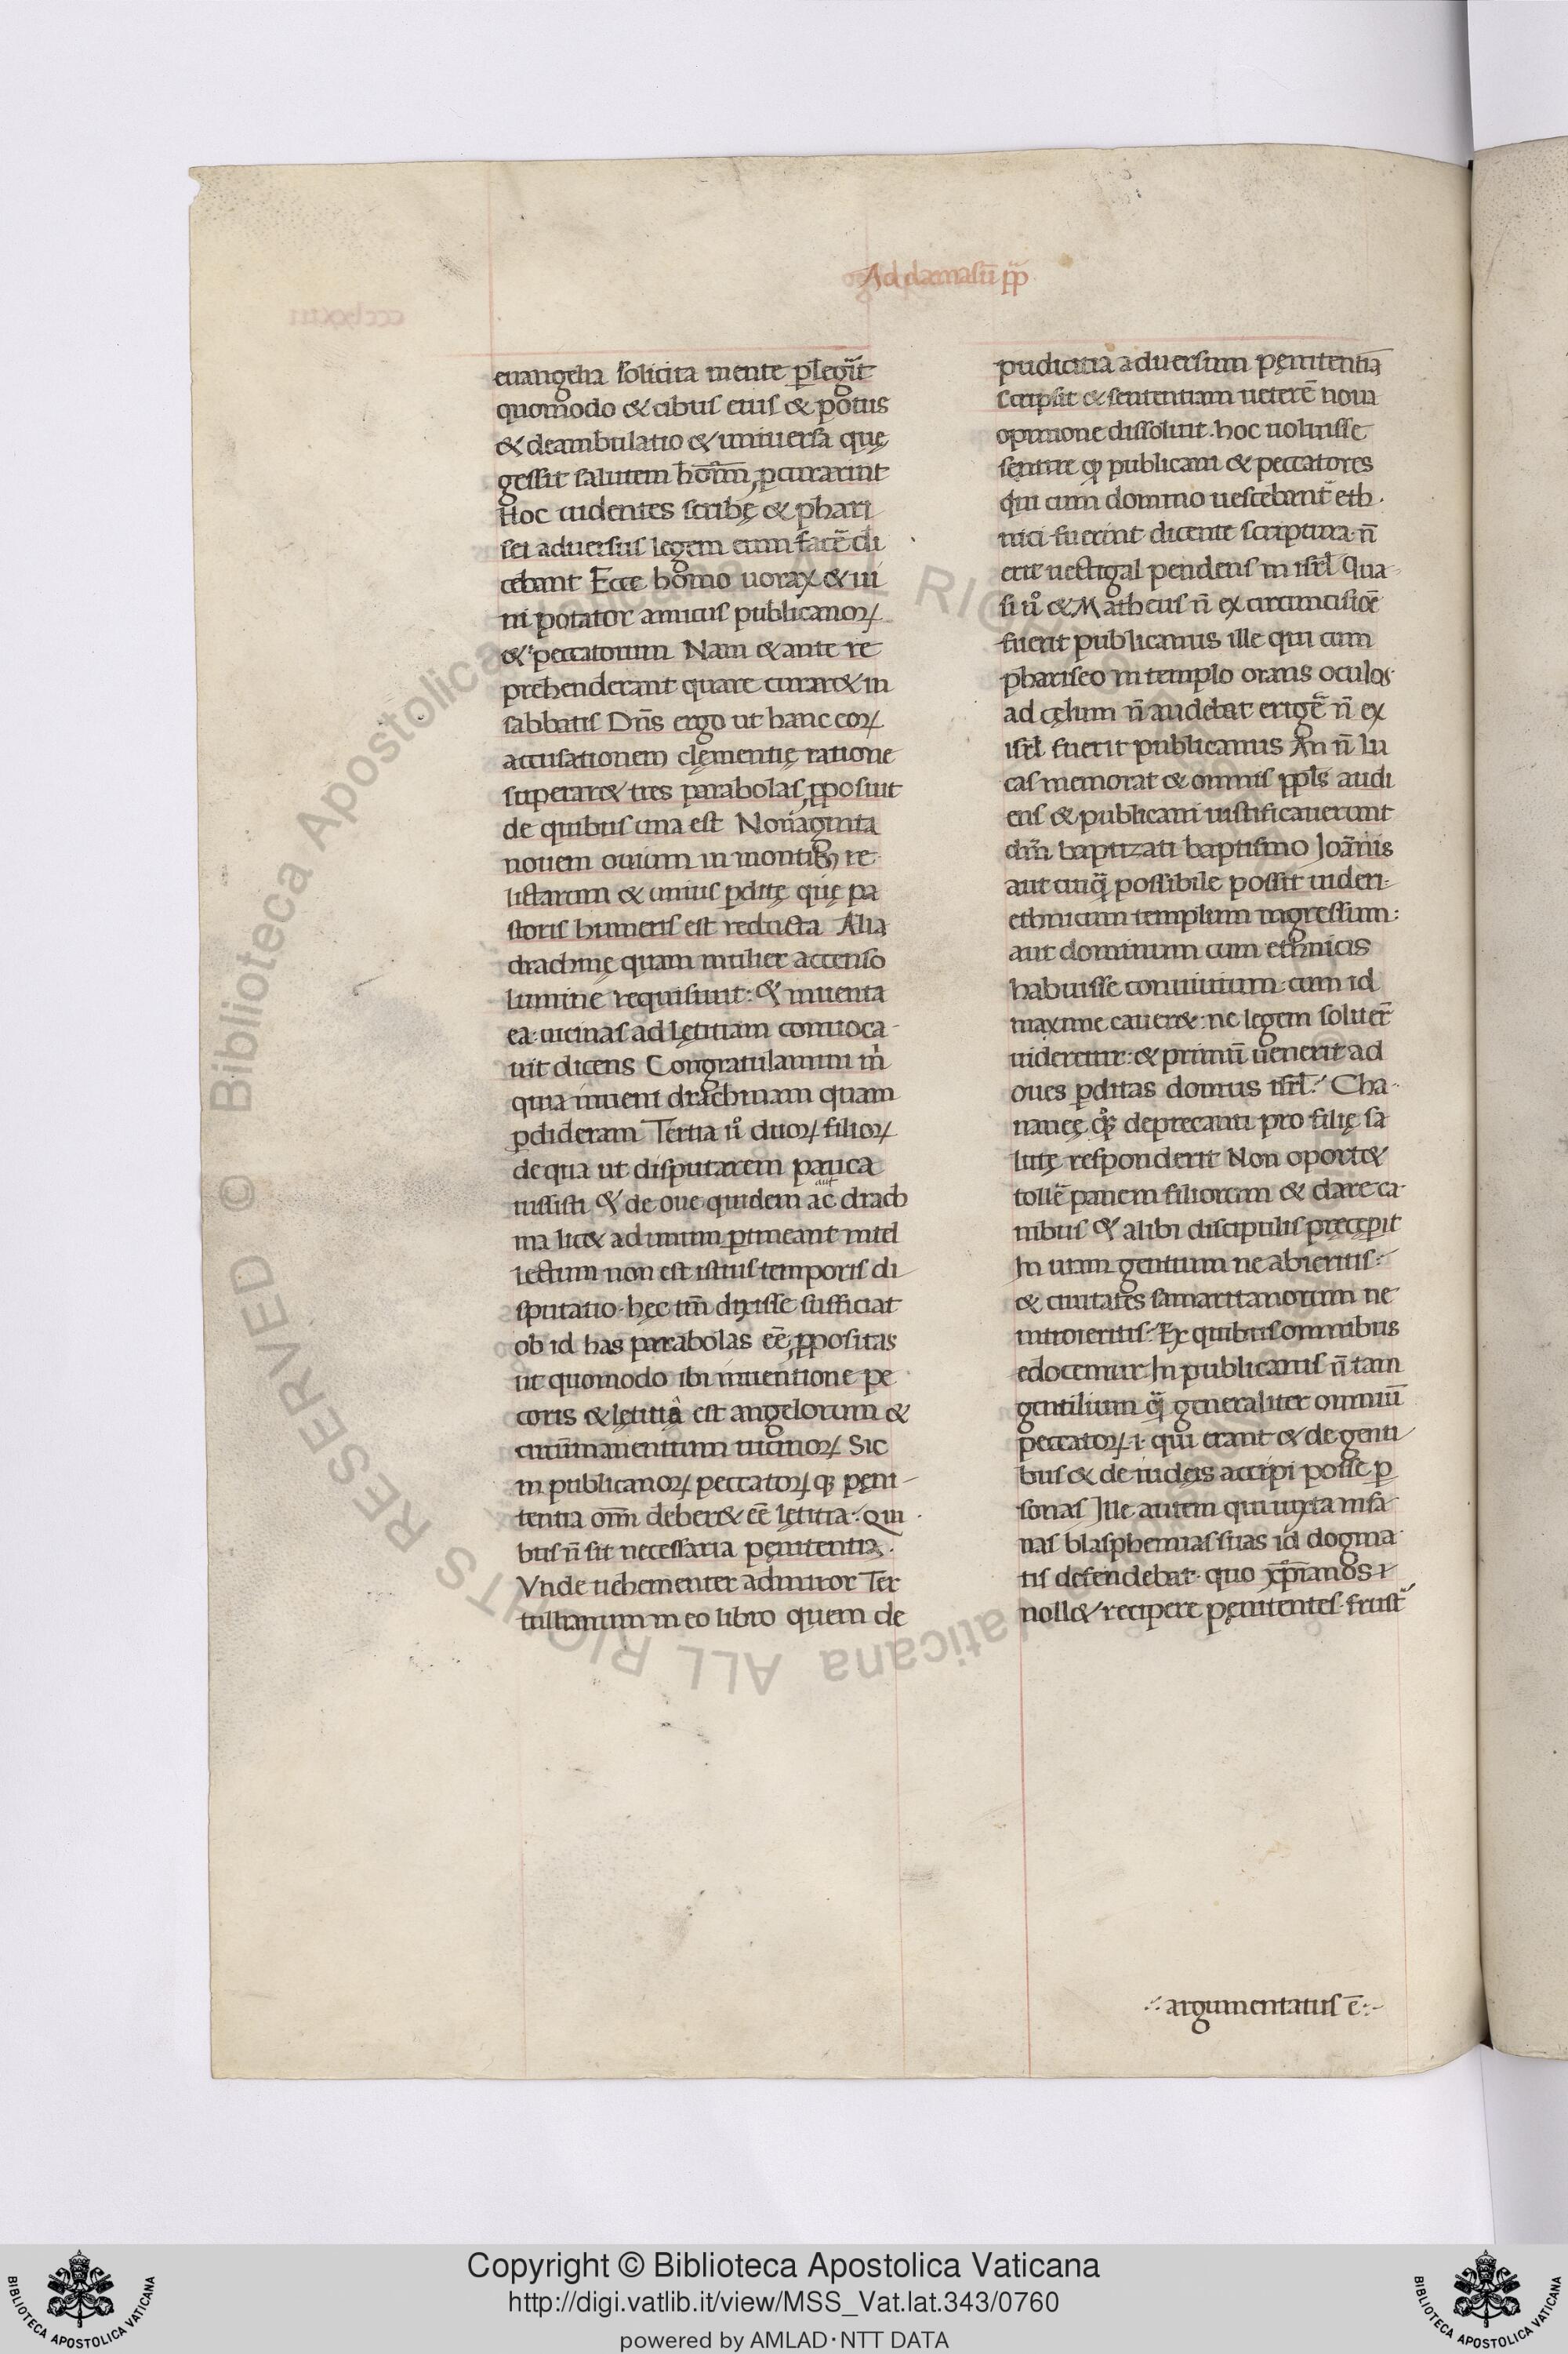 Ad damasū pp̄
euangelia solicita mente p̱legͥt
quomodo & cibus eius & potus
& deambulatio & uniuersa quę
gessit salutem homı̄m ꝓcurarint
Hoc uidentes scribę & phari
sei aduersus legem eum facē di
cebant Ecce homo uorax & ui
ni potator amicus publicanoꝝ
& peccatorum Nam & ante re
prehenderant quare curar& in
sabbatis Dn̄s ergo ut hanc eoꝝ
accusationem clęmentię ratione
superar& tres parabolas ꝓposuit
de quibus una est Nonaginta
nouem ouium in montibꝫ re
lictarum & unius ꝑditę quę pa
storis humeris est reducta Alia
drachmę quam mulier accenso
lumine requisiuit: & inuenta
ea uicinas ad lętitiam conuoca-
uit dicens Congratulamini m̍
quia inueni drachmam quam
ꝑdideram Tertia ů duoꝝ filioꝝ
de qua ut disputarem pauca
iussisti & de oue quidem ac drach
aut
ma lic& ad unum ꝑtineant intel
lectum non est istius temporis di
sputatio. hęc tm̄ dixisse sufficiat
ob id has parabolas eē ꝓpositas
ut quomodo ibi inuentione pe
coris & lętitia est angelorum &
circūmanentium uicinoꝝ Sic
in publicanoꝝ peccatoꝝ qꝫ pęni-
tentia om̄m deber& eē lętitia: Qui
bus n̄ sit necessaria pęnitentia.
Vnde uehementer admiror Ter
tullianum in eo libro quem de
pudicitia aduersum pęnitentiā
scripsit & sententiam ueterē noua
opinione dissoluit. hoc uoluisse
sentire ꝙ publicani & peccatores
qui cum domino uescebant̃ eth.
nici fuerint dicente scriptura n̄
erit uectigal pendens in isrl̄ Qua-
si ů & Matheus n̄ ex circumcisiōe
fuerit publicanus ille qui cum
phariseo in templo orans oculos
ad cęlum n̄ audebat erigē n̄ ex
isrl̄ fuerit publicanus An n̄ lu
cas memorat & omnis ppl̄s audi
ens & publicani iustificauerunt
dm̄ baptizati baptismo Joānis
aut cuiq̄ possibile possit uideri
ethnicum templum ingressum:
aut dominum cum ethnicis
habuisse conuiuium: cum id
maxime cauer&: ne legem soluer̄
uideretur: & primū uenerit ad
oues ꝑditas domus isrl̄: Cha-
naneę qͦꝫ deprecanti pro filię sa
lutę responderit Non oport&
tollē panem filiorum & dare ca-
nibus & alibi discipulis pręcepit
In uiam gentium ne abieritis:
& ciuitates samaritanorum ne
introieritis: Ex quibus omnibus
edocemur In publicanis n̄ tam
gentilium q̄ generaliter omniū
peccatoꝝ .i. qui erant & de genti
bus & de iudęis accipi posse ꝑ
sonas Ille autem qui iuxta insa
nas blasphemias suas id dogma
tis defendebat. quo xp̄ianos
noll& recipere pęnitentes. frust̃
argumentatus ē
Copyright © Biblioteca Apostolica Vaticana
http://digi.vatlib.it/view/MSS_Vat.lat.343/0760
powered by AMLAD·NTT DATA
BIBLIOTECA APOSTOLICA VATICANA
BIBLIOTECA APOSTOLICA VATICANA
© Biblioteca Apostolica Vaticana ALL RIGHTS RESERVED